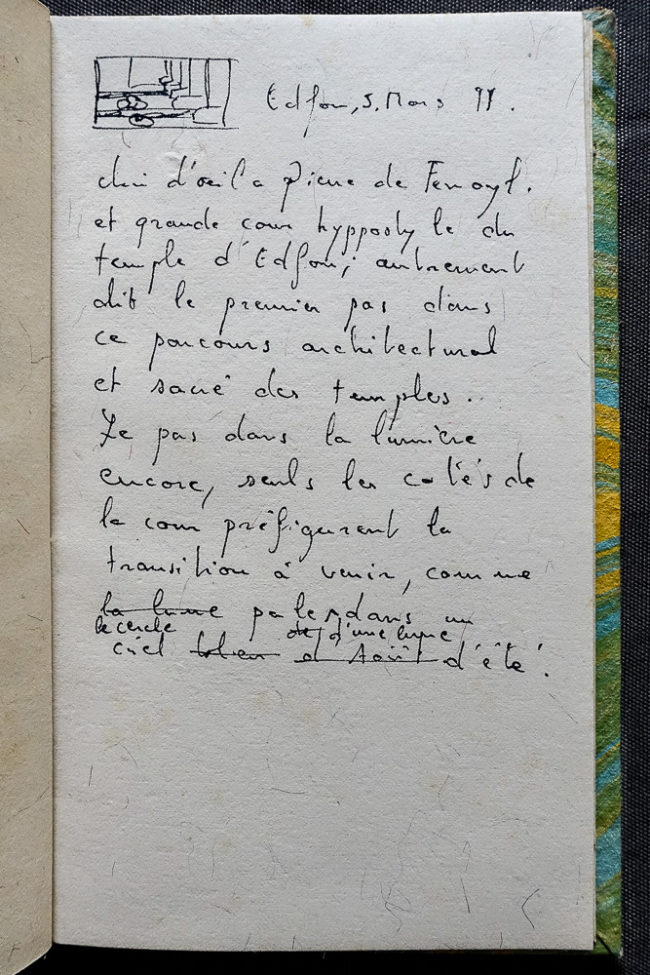 Edfou, 5. Mars 99.
clin d'oeil a Pierre de Fenoyl.
et grande cour hypposty le du
temple d'Edfou; autrement
dit le premier pas dans
ce parcours architectural
et sacré des temples.
Le pas dans la lumière
encore, seuls les cotés de
la cour préfigurent la
transition à venir, comme
la lune pales dans un
le cercle de d'une lune
ciel bleu d'Août d'été.